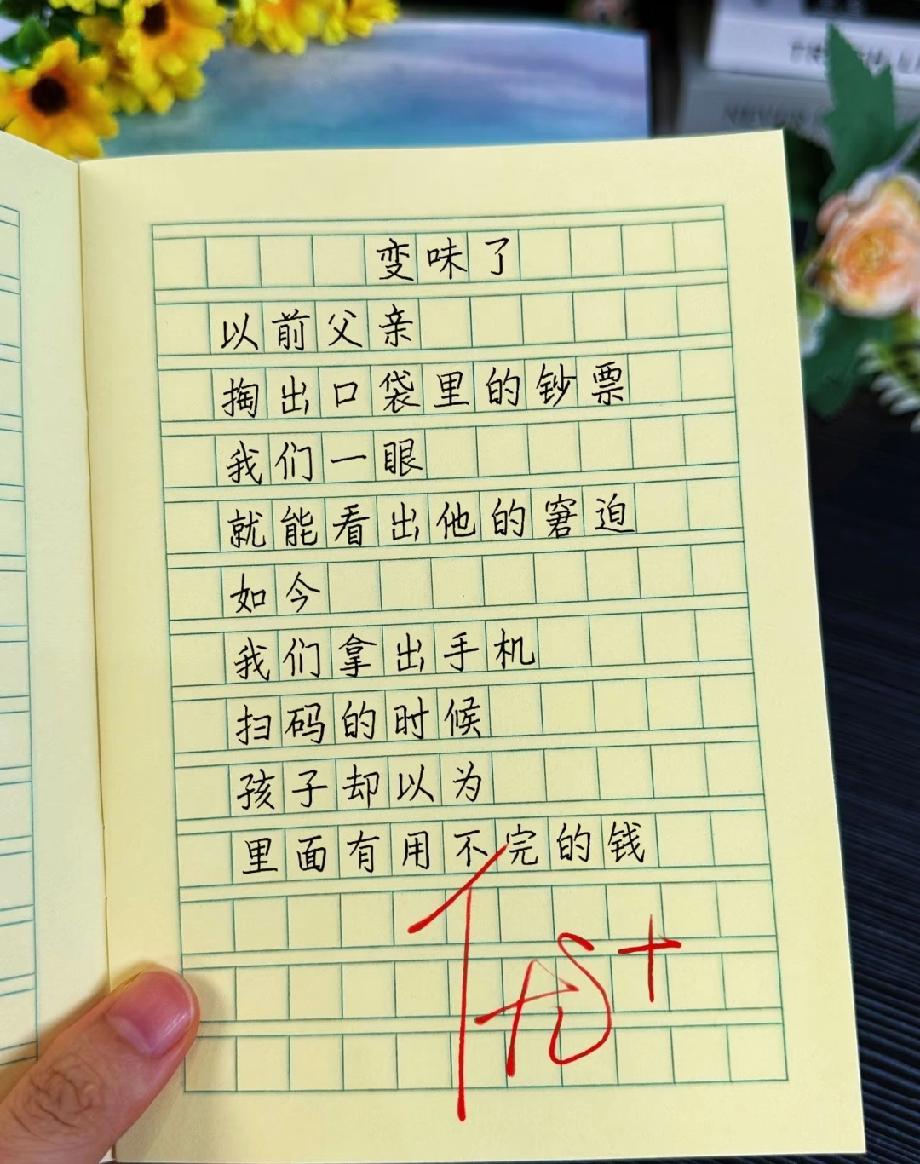 变味了
以前父亲
掏出口袋里的钞票
我们一眼
就能看出他的窘迫
如今
我们拿出手机
扫码的时候
孩子却以为
里面有用不完的钱
优+